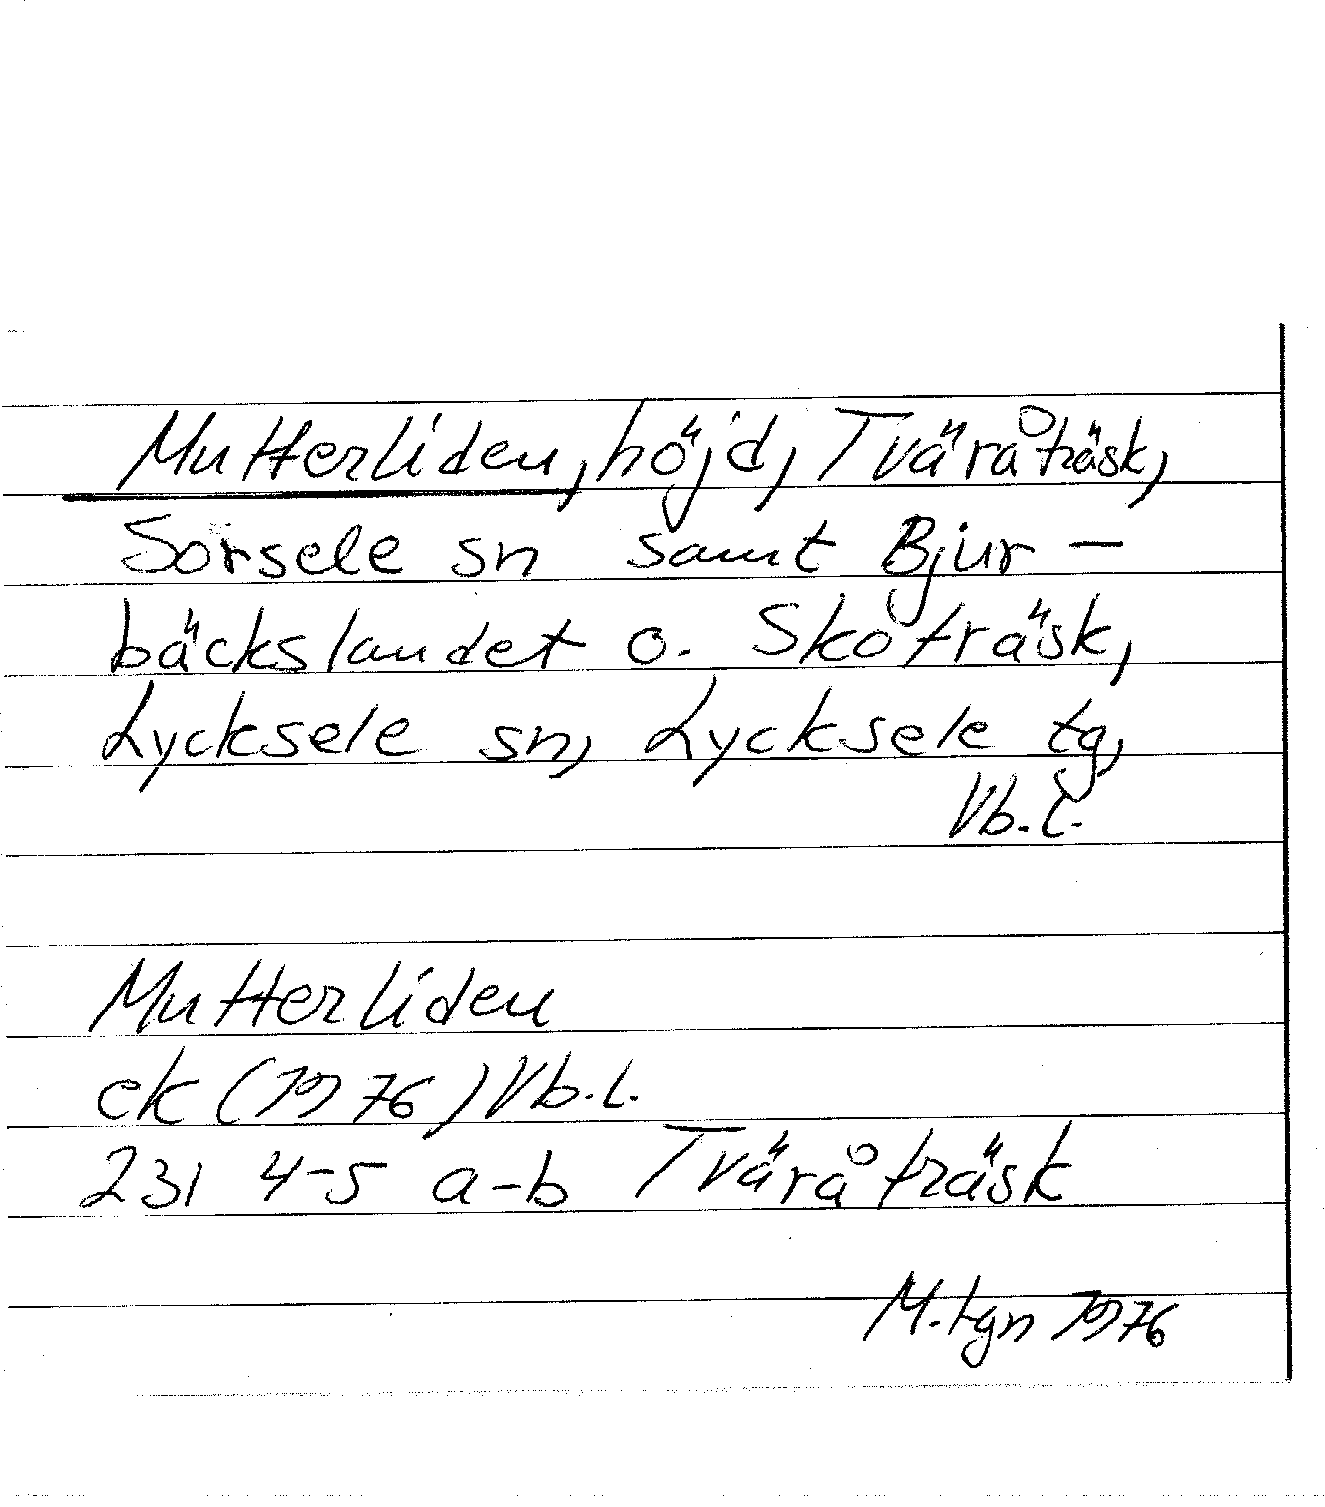 Mutterliden, höjd, Tväråträsk,
Sorsele sn samt Bjur-
bäckslandet o. Skoträsk,
Lycksele sn, Lycksele tg,
Vb.l.
Mutterliden
ek (1976) Vb.l.
231 4-5 a-b Tväråträsk
M.tgn 1976